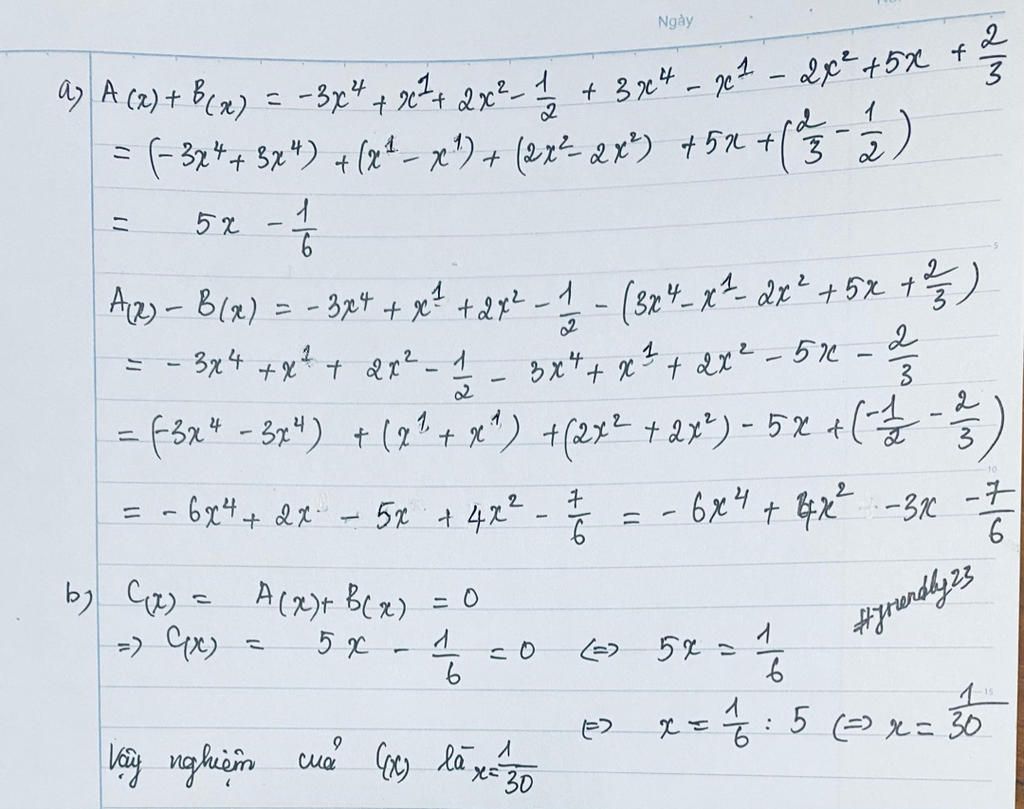 Ngày
a) A(x) + B(x) = -3x⁴ + x¹ + 2x² - 1/2 + 3x⁴ - x¹ - 2x² + 5x + 2/3
= (-3x⁴ + 3x⁴) + (x¹ - x¹) + (2x² - 2x²) + 5x + (2/3 - 1/2)
= 5x - 1/6
5
A(x) - B(x) = -3x⁴ + x¹ + 2x² - 1/2 - (3x⁴ - x¹ - 2x² + 5x + 2/3)
= -3x⁴ + x¹ + 2x² - 1/2 - 3x⁴ + x¹ + 2x² - 5x - 2/3
= (-3x⁴ - 3x⁴) + (x¹ + x¹) + (2x² + 2x²) - 5x + (-1/2 - 2/3)
10
= -6x⁴ + 2x - 5x + 4x² - 7/6 = -6x⁴ + 4x² - 3x - 7/6
b) C(x) = A(x) + B(x) = 0
#friendly23
=> C(x) = 5x - 1/6 = 0 <=> 5x = 1/6
15
<=> x = 1/6 : 5 <=> x = 1/30
Vậy nghiệm của C(x) là x = 1/30